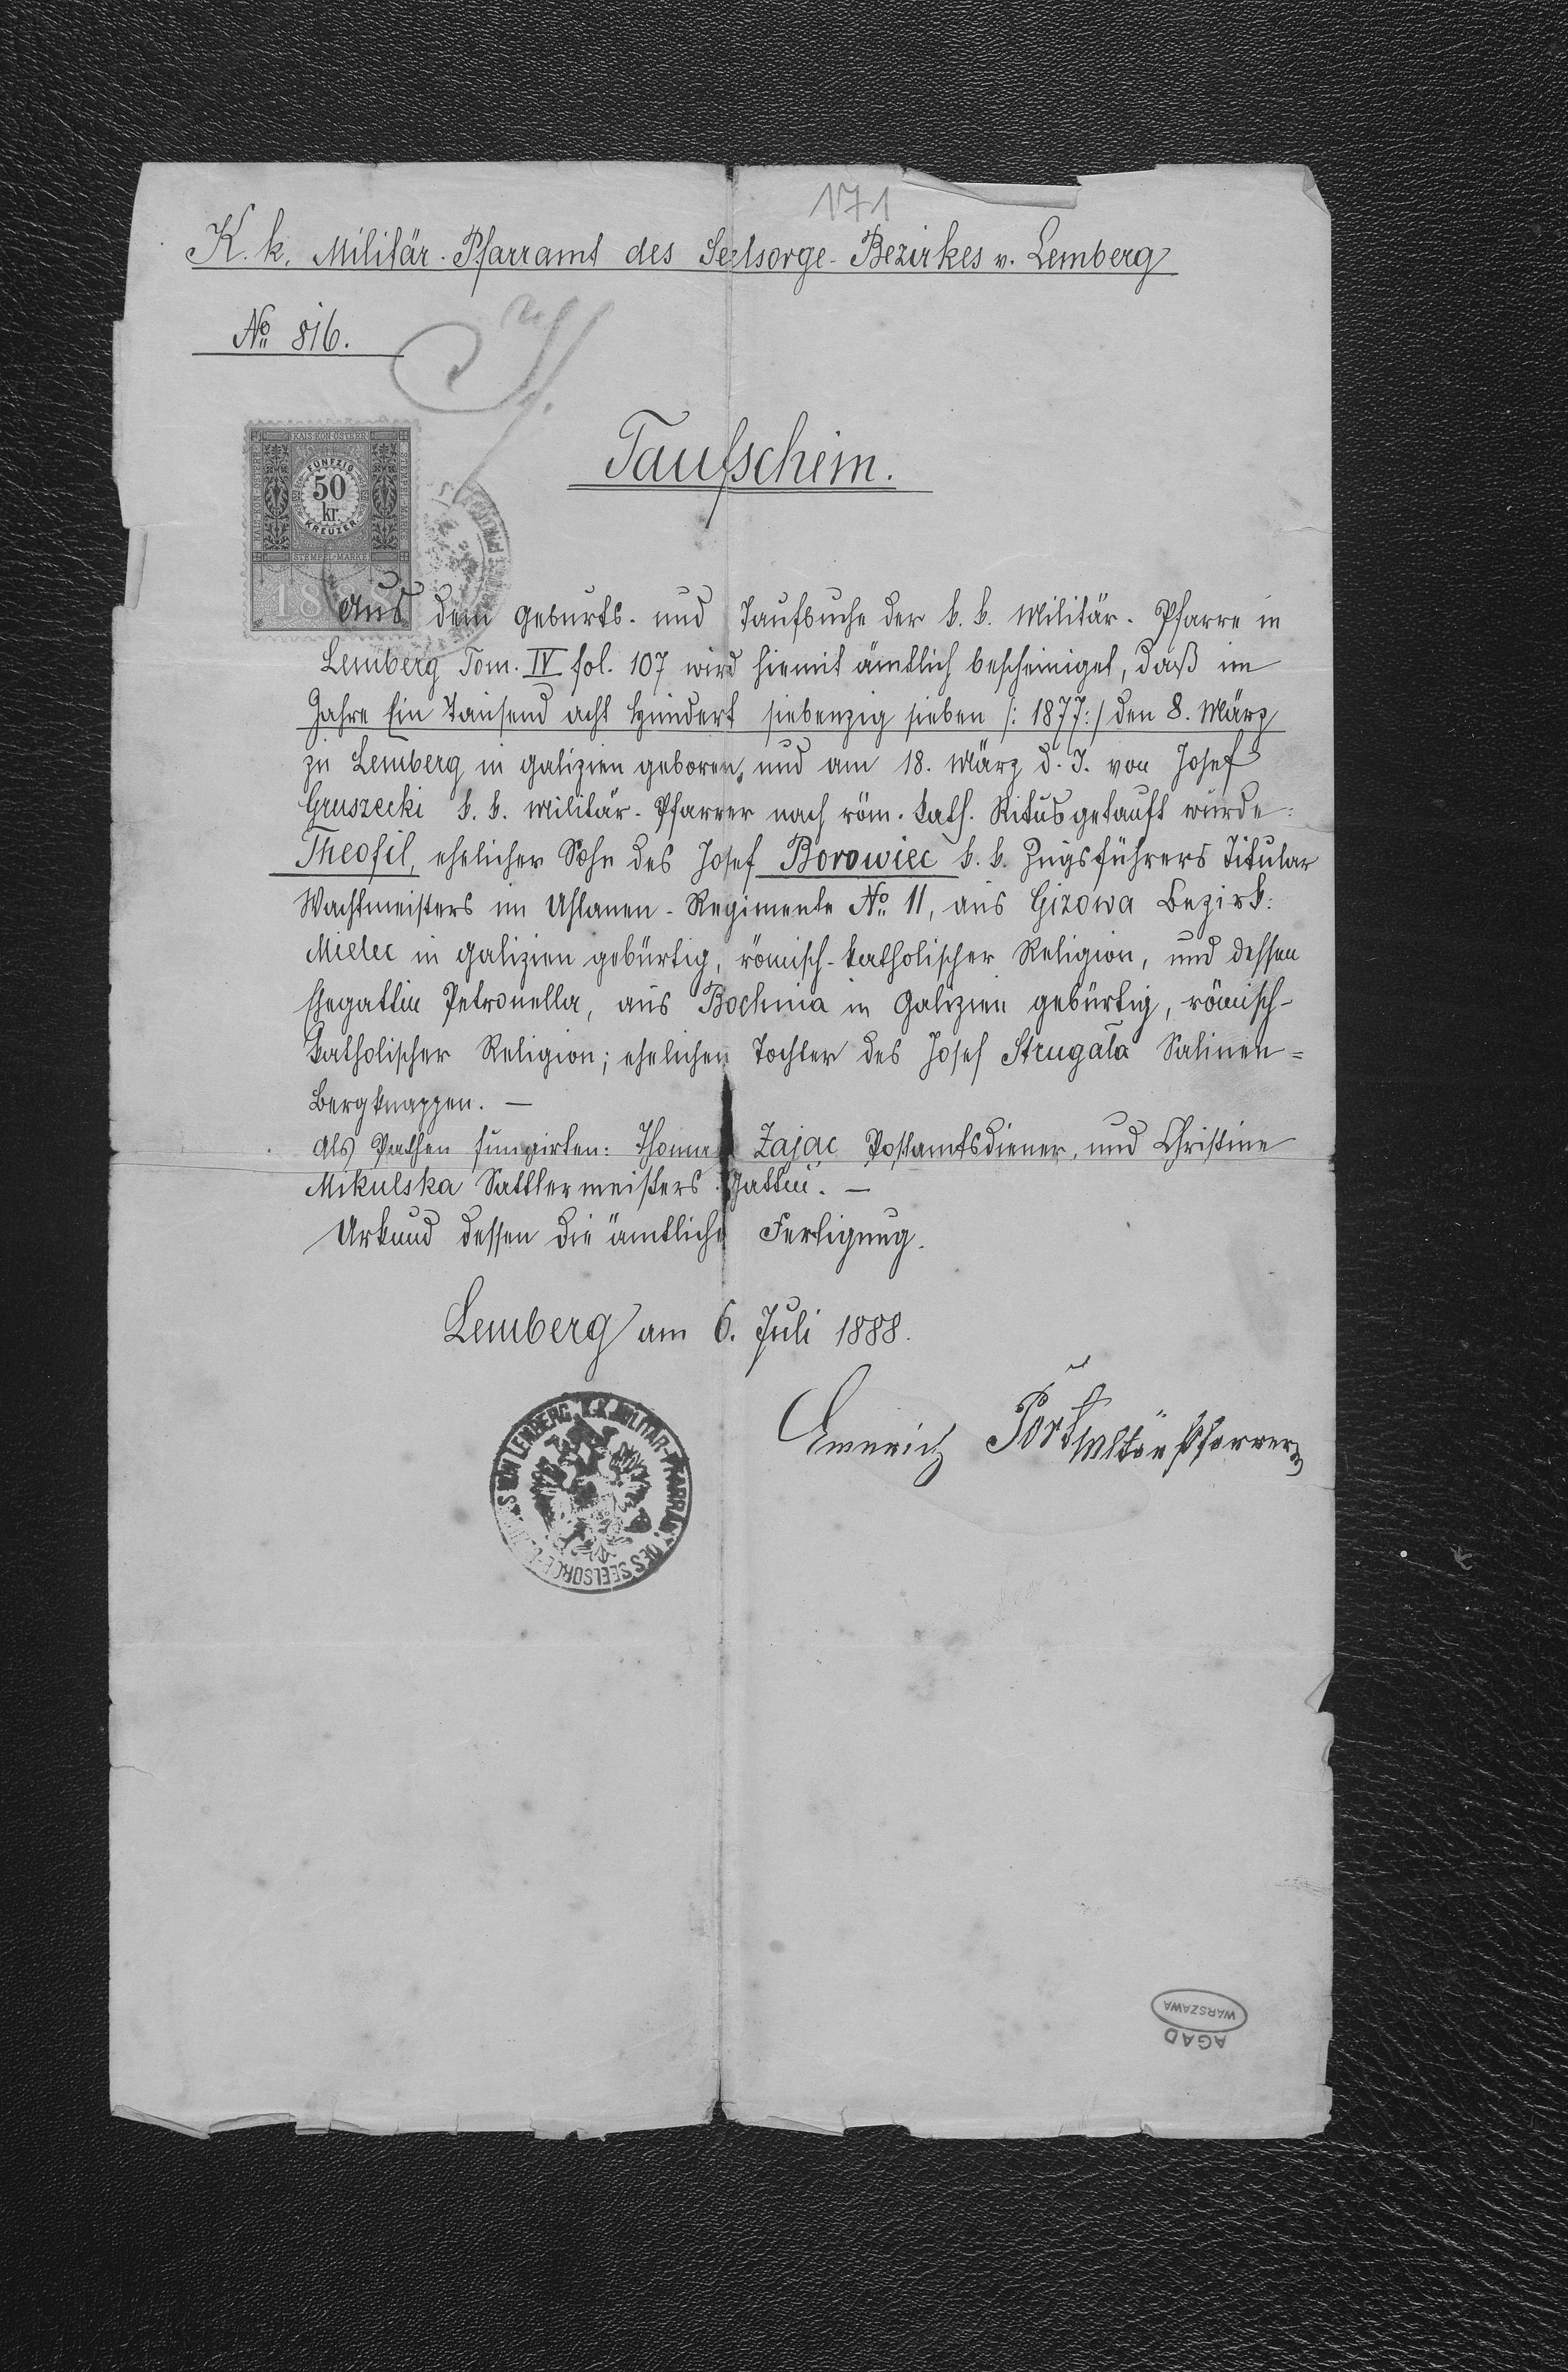 171
K. k. Militär-Pfarramt des Seelsorge-Bezirkes v. Lemberg
No 816.
KAIS. KÖN. ÖSTERR.
FÜNFZIG
50
kr.
KREUZER
STEMPEL-MARKE
Taufschein.
Aus dem Geburts- und Taufbuche der k. k. Militär-Pfarre in
Lemberg Tom. IV fol. 107 wird hiemit ämtlich bescheiniget, daß im
Jahre Ein Tausend acht Hundert siebenzig sieben /: 1877 :/ den 8. März
zu Lemberg in Galizien geboren, und am 18. März d. J. von Josef
Gruszecki k. k. Militär-Pfarrer nach röm. kath. Ritus getauft wurde:
Theofil, ehelicher Sohn des Josef Borowiec k. k. Zugsführers Titular
Wachtmeisters im Uhlanen-Regimente No 11, aus Gizowa Bezirk:
Mielec in Galizien gebürtig, römisch-katholischer Religion, und dessen
Ehegattin Petronella, aus Bochnia in Galizien gebürtig, römisch-
katholischer Religion; ehelichen Tochter des Josef Strugała Salinen=
Bergknappen. —
Als Pathen fungirten: Thomas Zajac Postamtsdiener, und Christine
Mikulska Sattlermeisters Gattin. —
Urkund dessen die ämtliche Fertigung.
Lemberg am 6. Juli 1888.
Emerich Militärpfarrer
K. K. MILITÄR-PFARRAMT DES SEELSORGE-BEZIRKES VON LEMBERG
WARSZAWA
AGAD